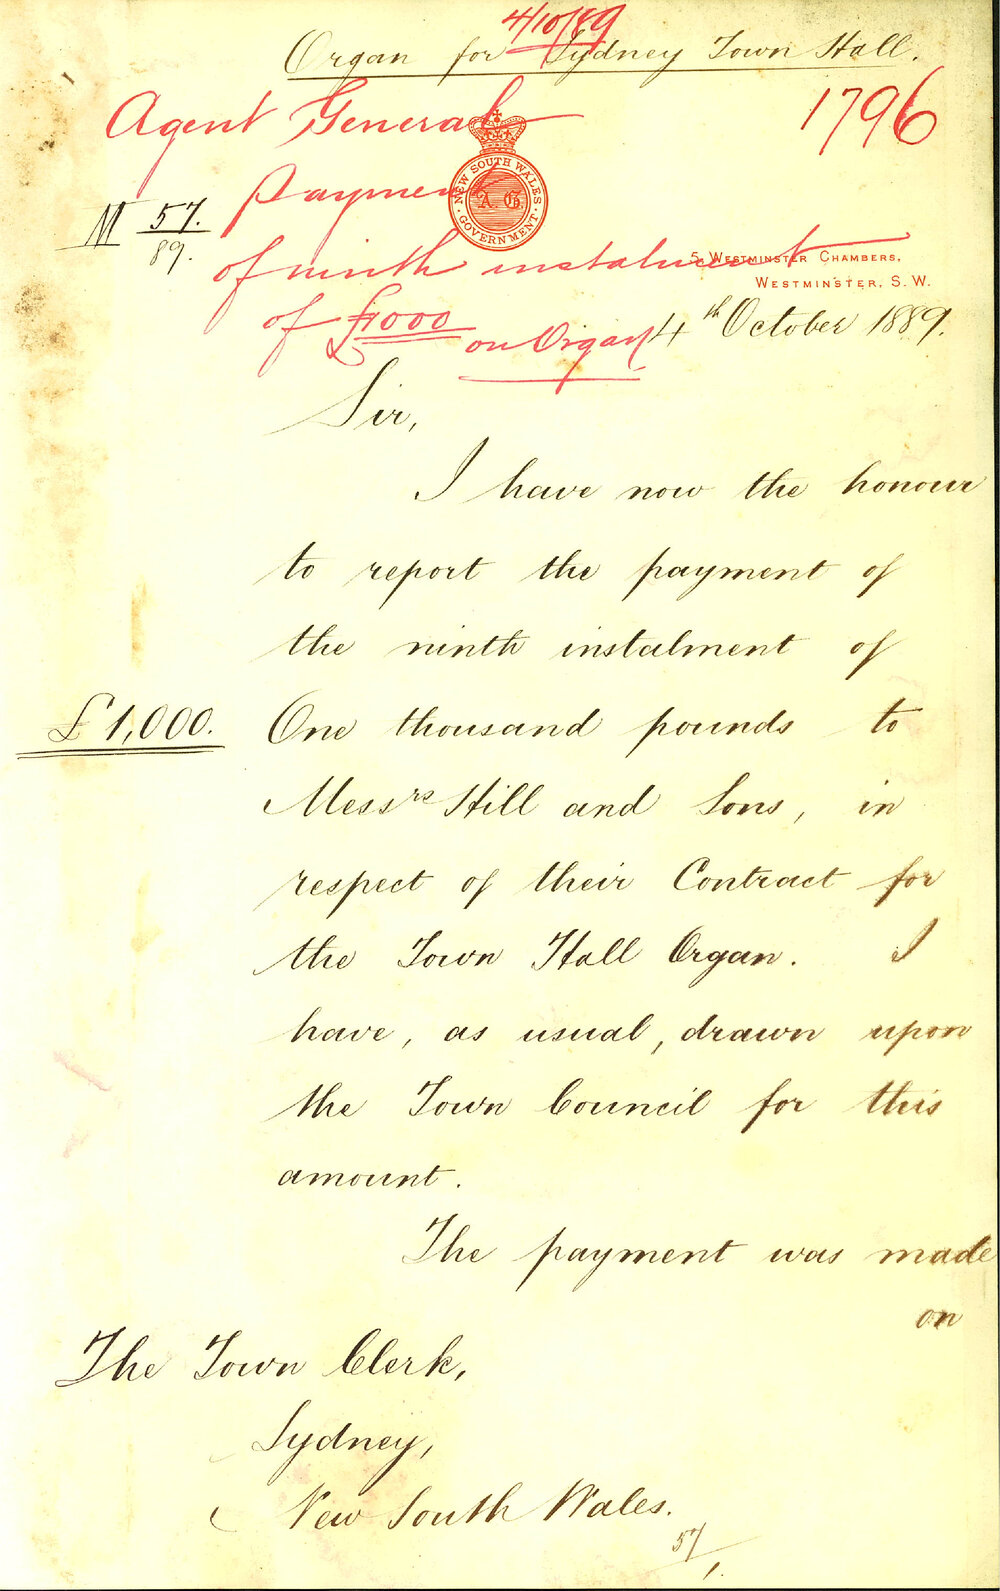 4/10/89
Organ for Sydney Town Hall.
Agent General
1796
NEW SOUTH WALES
A.G.
GOVERNMENT
Payment
M 57.
89.
of ninth instalment
5, WESTMINSTER CHAMBERS,
WESTMINSTER, S.W.
of £1000
on Organ
4th October 1889.
Sir,
I have now the honour
to report the payment of
the ninth instalment of
£1,000. One thousand pounds to
Messrs Hill and Sons, in
respect of their Contract for
the Town Hall Organ. I
have, as usual, drawn upon
the Town Council for this
amount.
The payment was made
on
The Town Clerk,
Sydney,
New South Wales.
57/1.